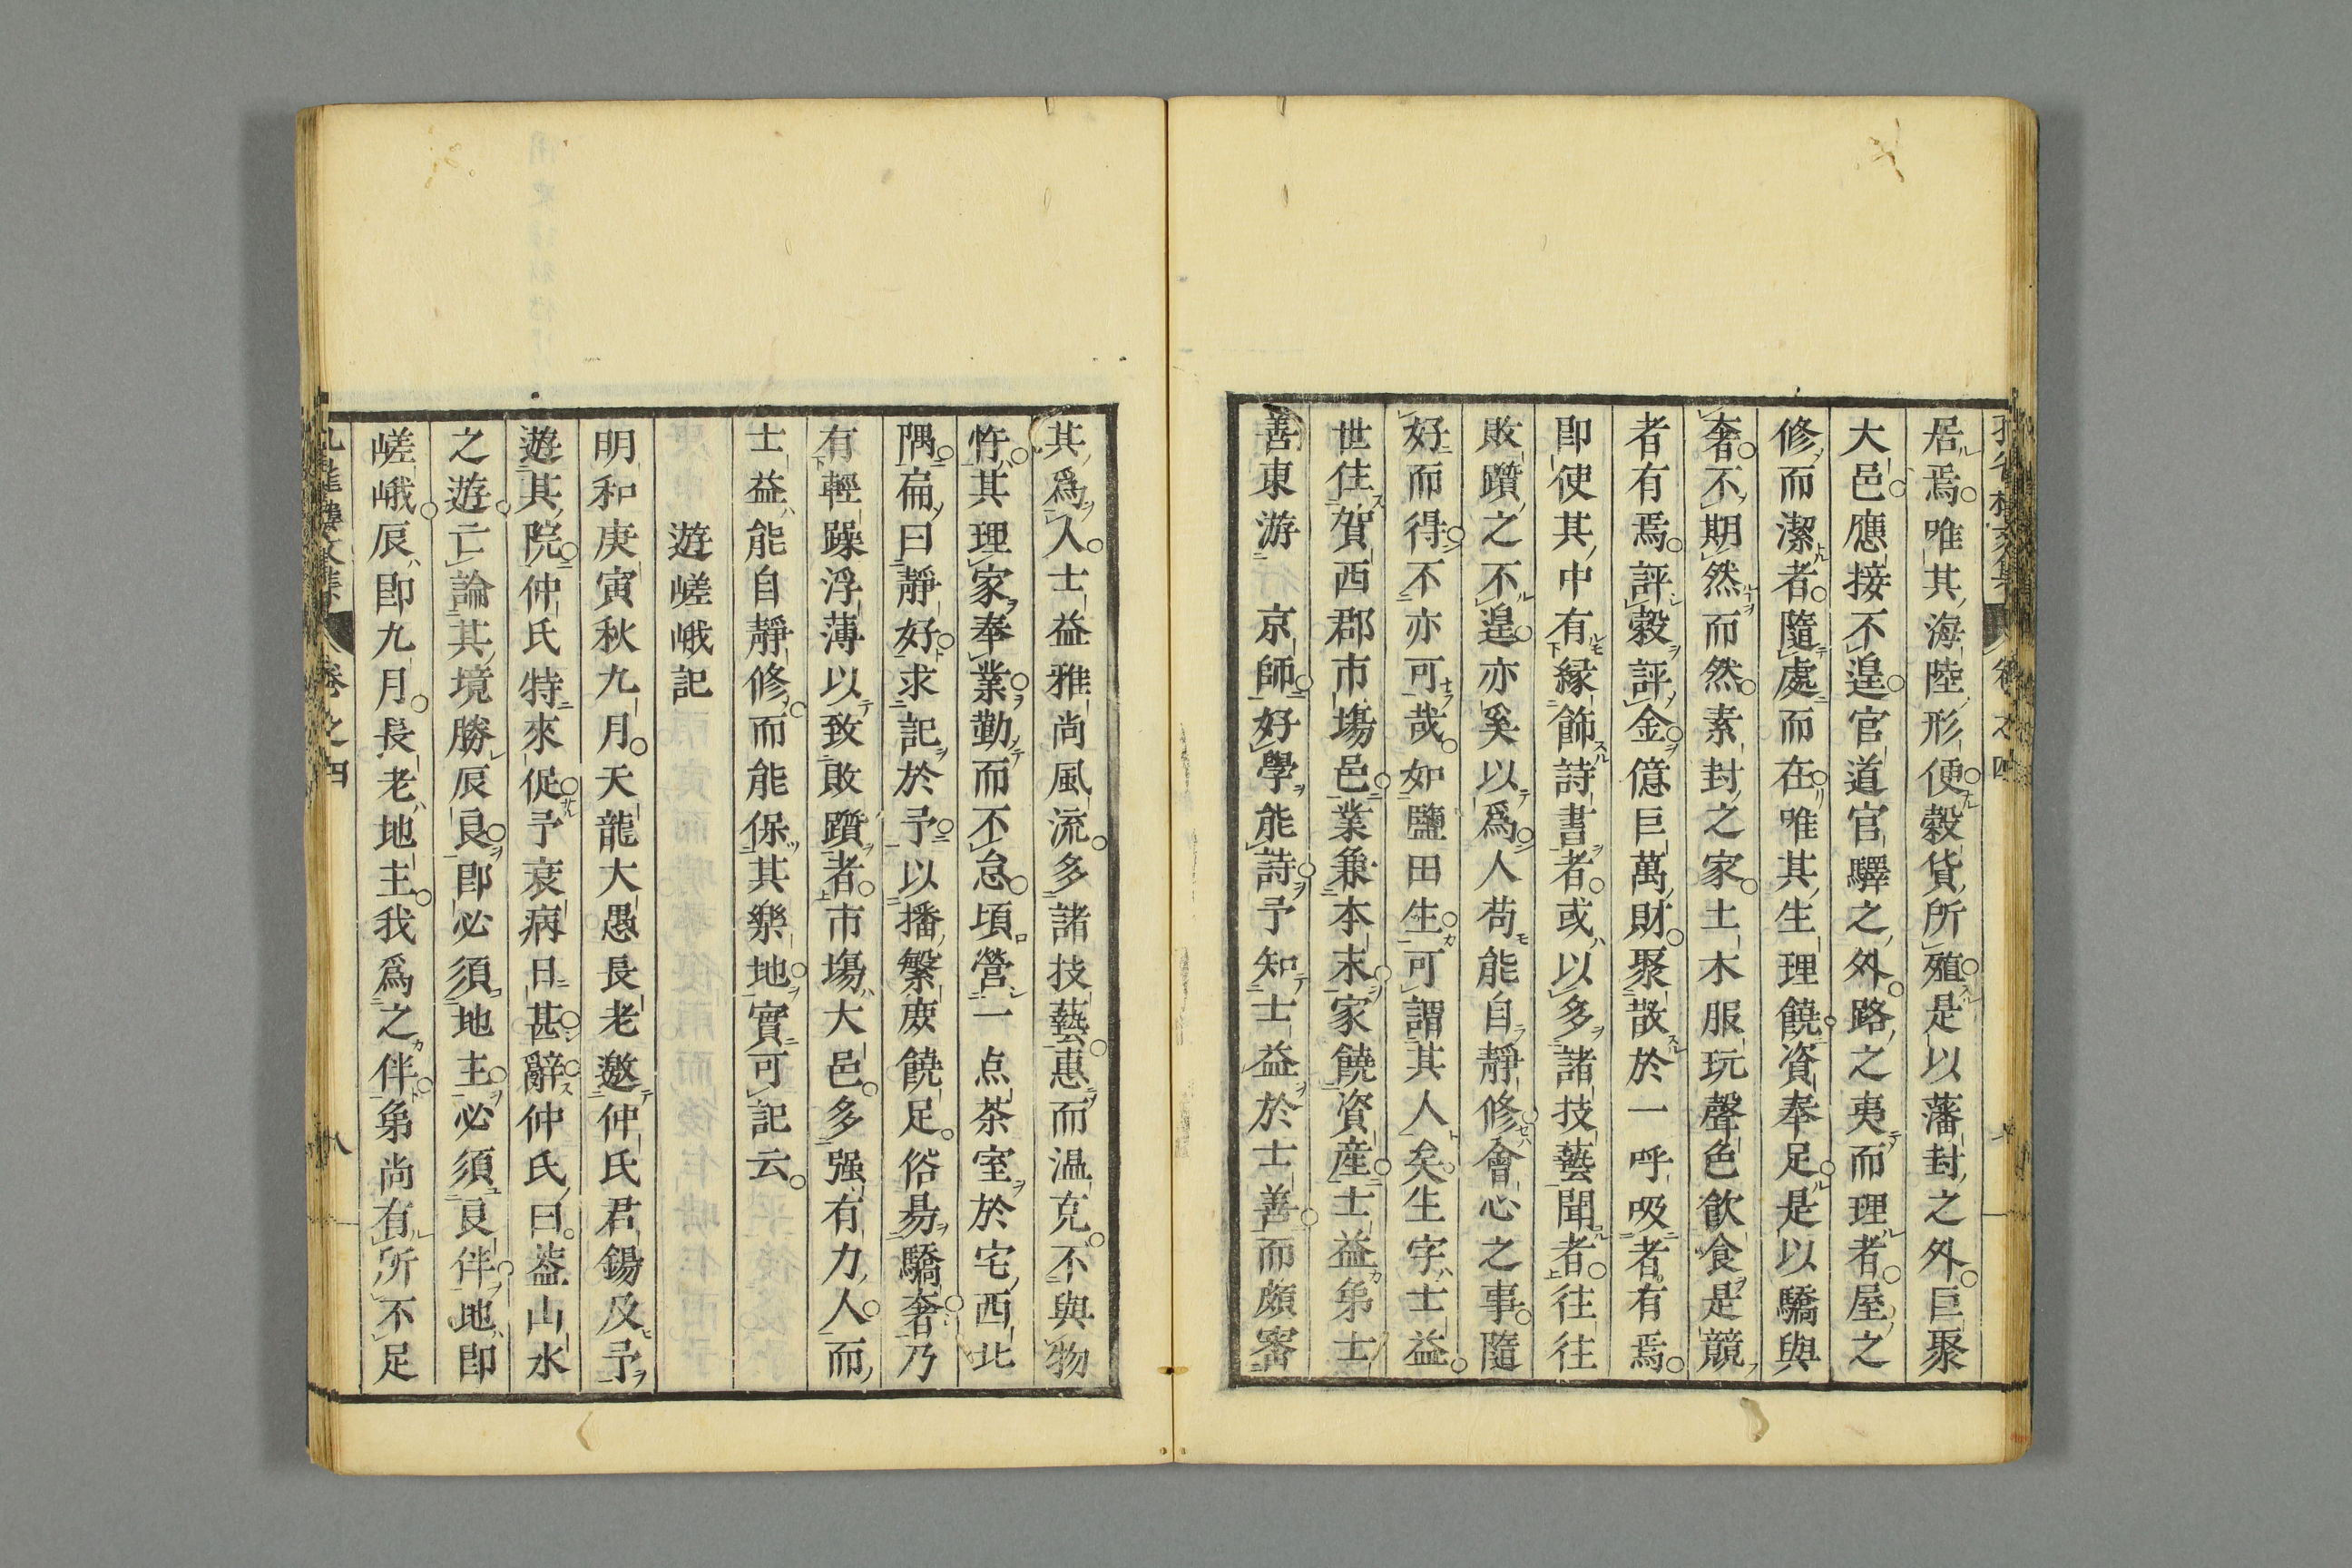 居焉唯其海陸形便穀貨所殖是以藩封之外巨聚
大邑應接不遑官道官驛之外路之夷而理者屋之
修而潔者隨處而在唯其生理饒資奉足是以驕與
奢不期然而然素封之家土木服玩聲色飲食是競
者有焉評穀評金億巨萬財聚散於一呼吸者有焉
即使其中有緣飾詩書者或以多諸技藝聞者往往
敗躓之不遑亦奚以爲人苟能自靜修會心之事隨
好而得不亦可哉如鹽田生可謂其人矣生字士益
世住賀西郡市場邑業兼本末家饒資産士益弟士
善東游京師好學能詩予知士益於士善而頗審
其爲人士益雅尚風流多諸技藝惠而温克不與物
忤其理家奉業勤而不怠頃營一点茶室於宅西北
隅扁曰靜好求記於予以播繁庶饒足俗易驕奢乃
有輕躁浮薄以致敗躓者市場大邑多强有力人而
士益能自靜修而能保其樂地實可記云
遊嵯峨記
明和庚寅秋九月天龍大愚長老邀仲氏君錫及予
遊其院仲氏特來促予衰病日甚辭仲氏曰蓋山水
之遊亡論其境勝辰良即必須地主必須良伴地即
嵯峨辰即九月長老地主我爲之伴弟尚有所不足
卷之四
八